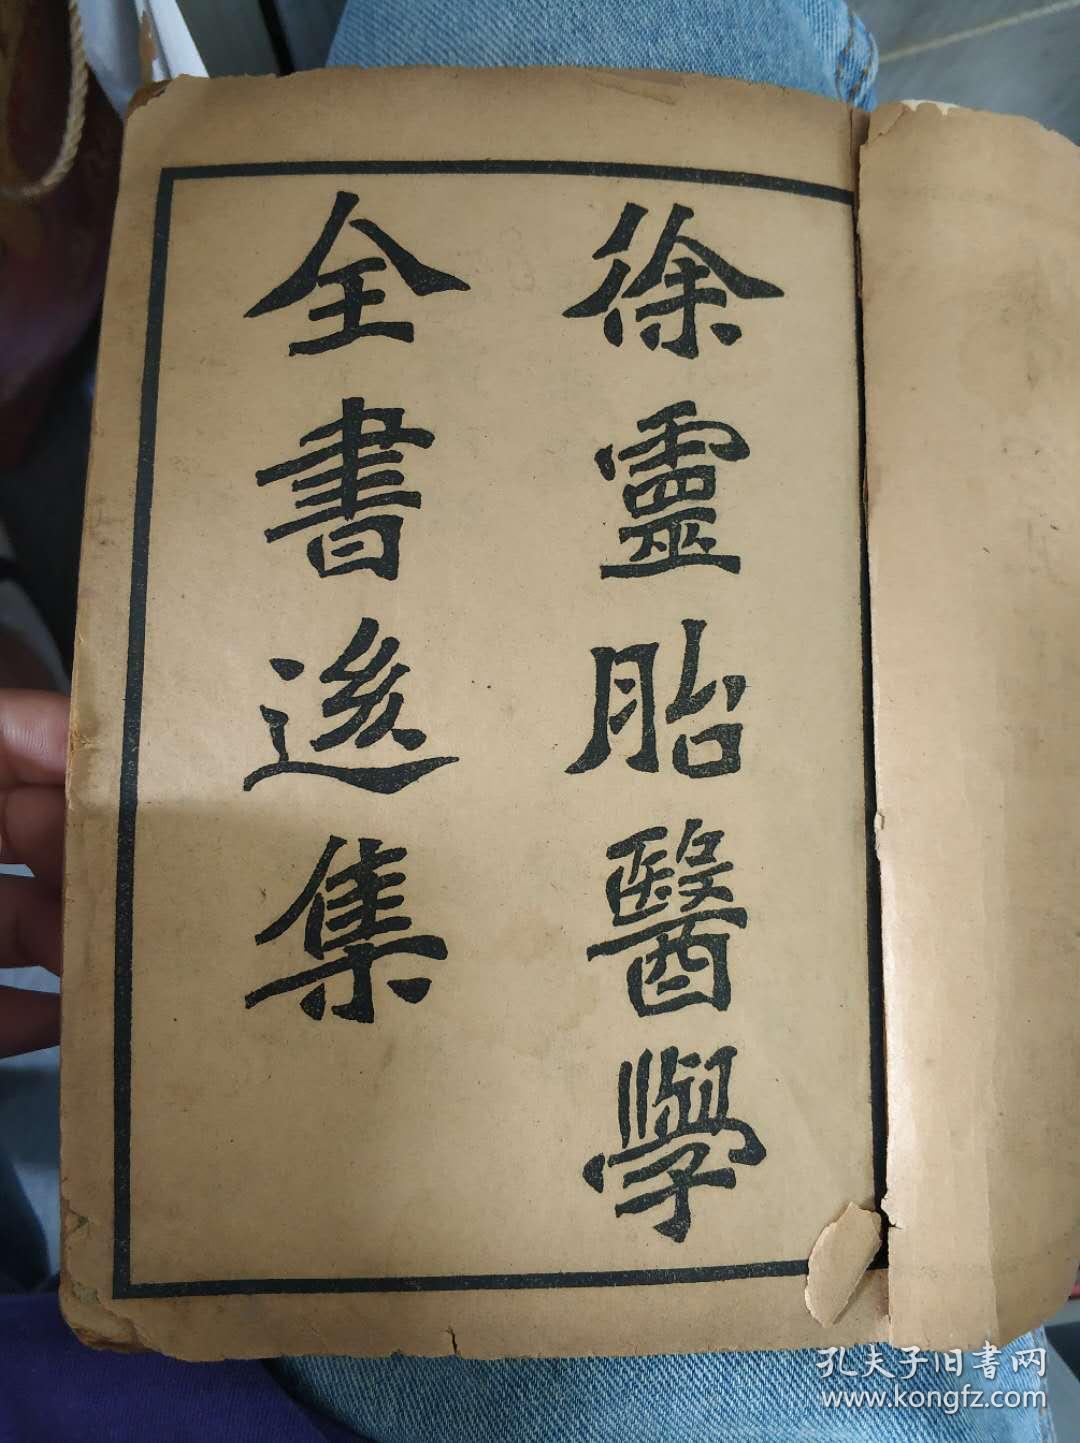 徐靈胎醫學
全書後集
孔夫子旧書网
www.kongfz.com